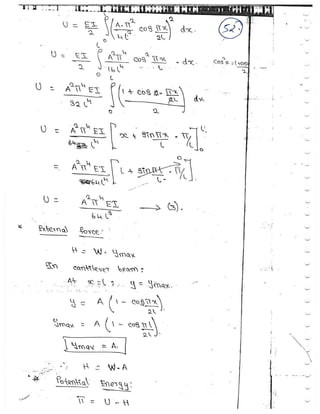 U = EI/2 ∫₀ˡ (A·π²/4l² cos πx/2l)² dx.
52
U = EI/2 ∫₀ˡ A²π⁴/16l⁴ cos² πx/2l · dx.
U = A²π⁴EI/32l⁴ ∫₀ˡ (1 + cos 2·πx/2l / 2) dx
U = A²π⁴EI/64l⁴ [x + sin πx/l · π/l]₀ˡ
= A²π⁴EI/64l⁴ [l + sin πl/l · π/l].
U = A²π⁴EI/64l³ → (3).
* External force:
H = W. ymax
In cantilever beam:
At x = l ; y = ymax.
y = A (1 - cos πx/2l)
ymax = A (1 - cos πl/2l)
ymax = A.
∴ H = W.A
* Potential Energy:
π = U - H